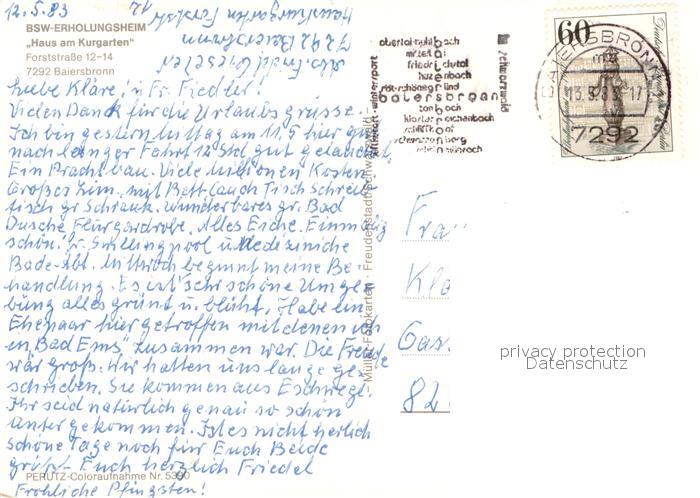 12.5.83
BSW-ERHOLUNGSHEIM
„Haus am Kurgarten"
Forststraße 12–14
7292 Baiersbronn
7292 Baiersbronn
Liebe Kläre! u Fr. Fiedler!
Vielen Dank für die Urlaubsgrüsse.
Ich bin gestern Mittag am 11.5 hier gut
nach langer Fahrt 12 Std gut gelandet
Ein Prachtbau. Viele Millionen Kosten
Großes Zim. mit Bett Couch Tisch Schreib
tisch gr Schrank. Wunderbares gr. Bad
Dusche Flurgardrobe. Alles Eiche. Einmalig
schön. Gr. u Mediziniche
Bade-Abt. Mittwoch beginnt meine Be-
handlung. Es ist sehr schöne Umge-
bung alles grünt u. blüht. Habe ein
Ehepaar hier getroffen mit denen ich
in „Bad Ems" zusammen war. Die Freude
wär groß. Wir hatten uns lange ges-
chrieben. Sie kommen aus Eschwege.
Ihr seid natürlich genau so schön
untergekommen. Ist es nicht herlich
schöne Tage noch für Euch Beide
grüßt Euch herzlich Friedel
PERUTZ-Coloraufnahme Nr. 5300
Fröhliche Pfingsten!
Müller-Fotokarten · Freudenstadt/Schwarzwald
obertal-buhlbach
mitteltal
friedrichstal
huzenbach
röt-schönegründ
baiersbronn
tonbach
klosterreichenbach
schwarzenberg
schönmünzach
luftkurort - wintersport
im schwarzwald
60
Deutsche Bundespost
BAIERSBRONN
13.5.83-17
7292
Fra
Kl
Gas
82
privacy protection
Datenschutz